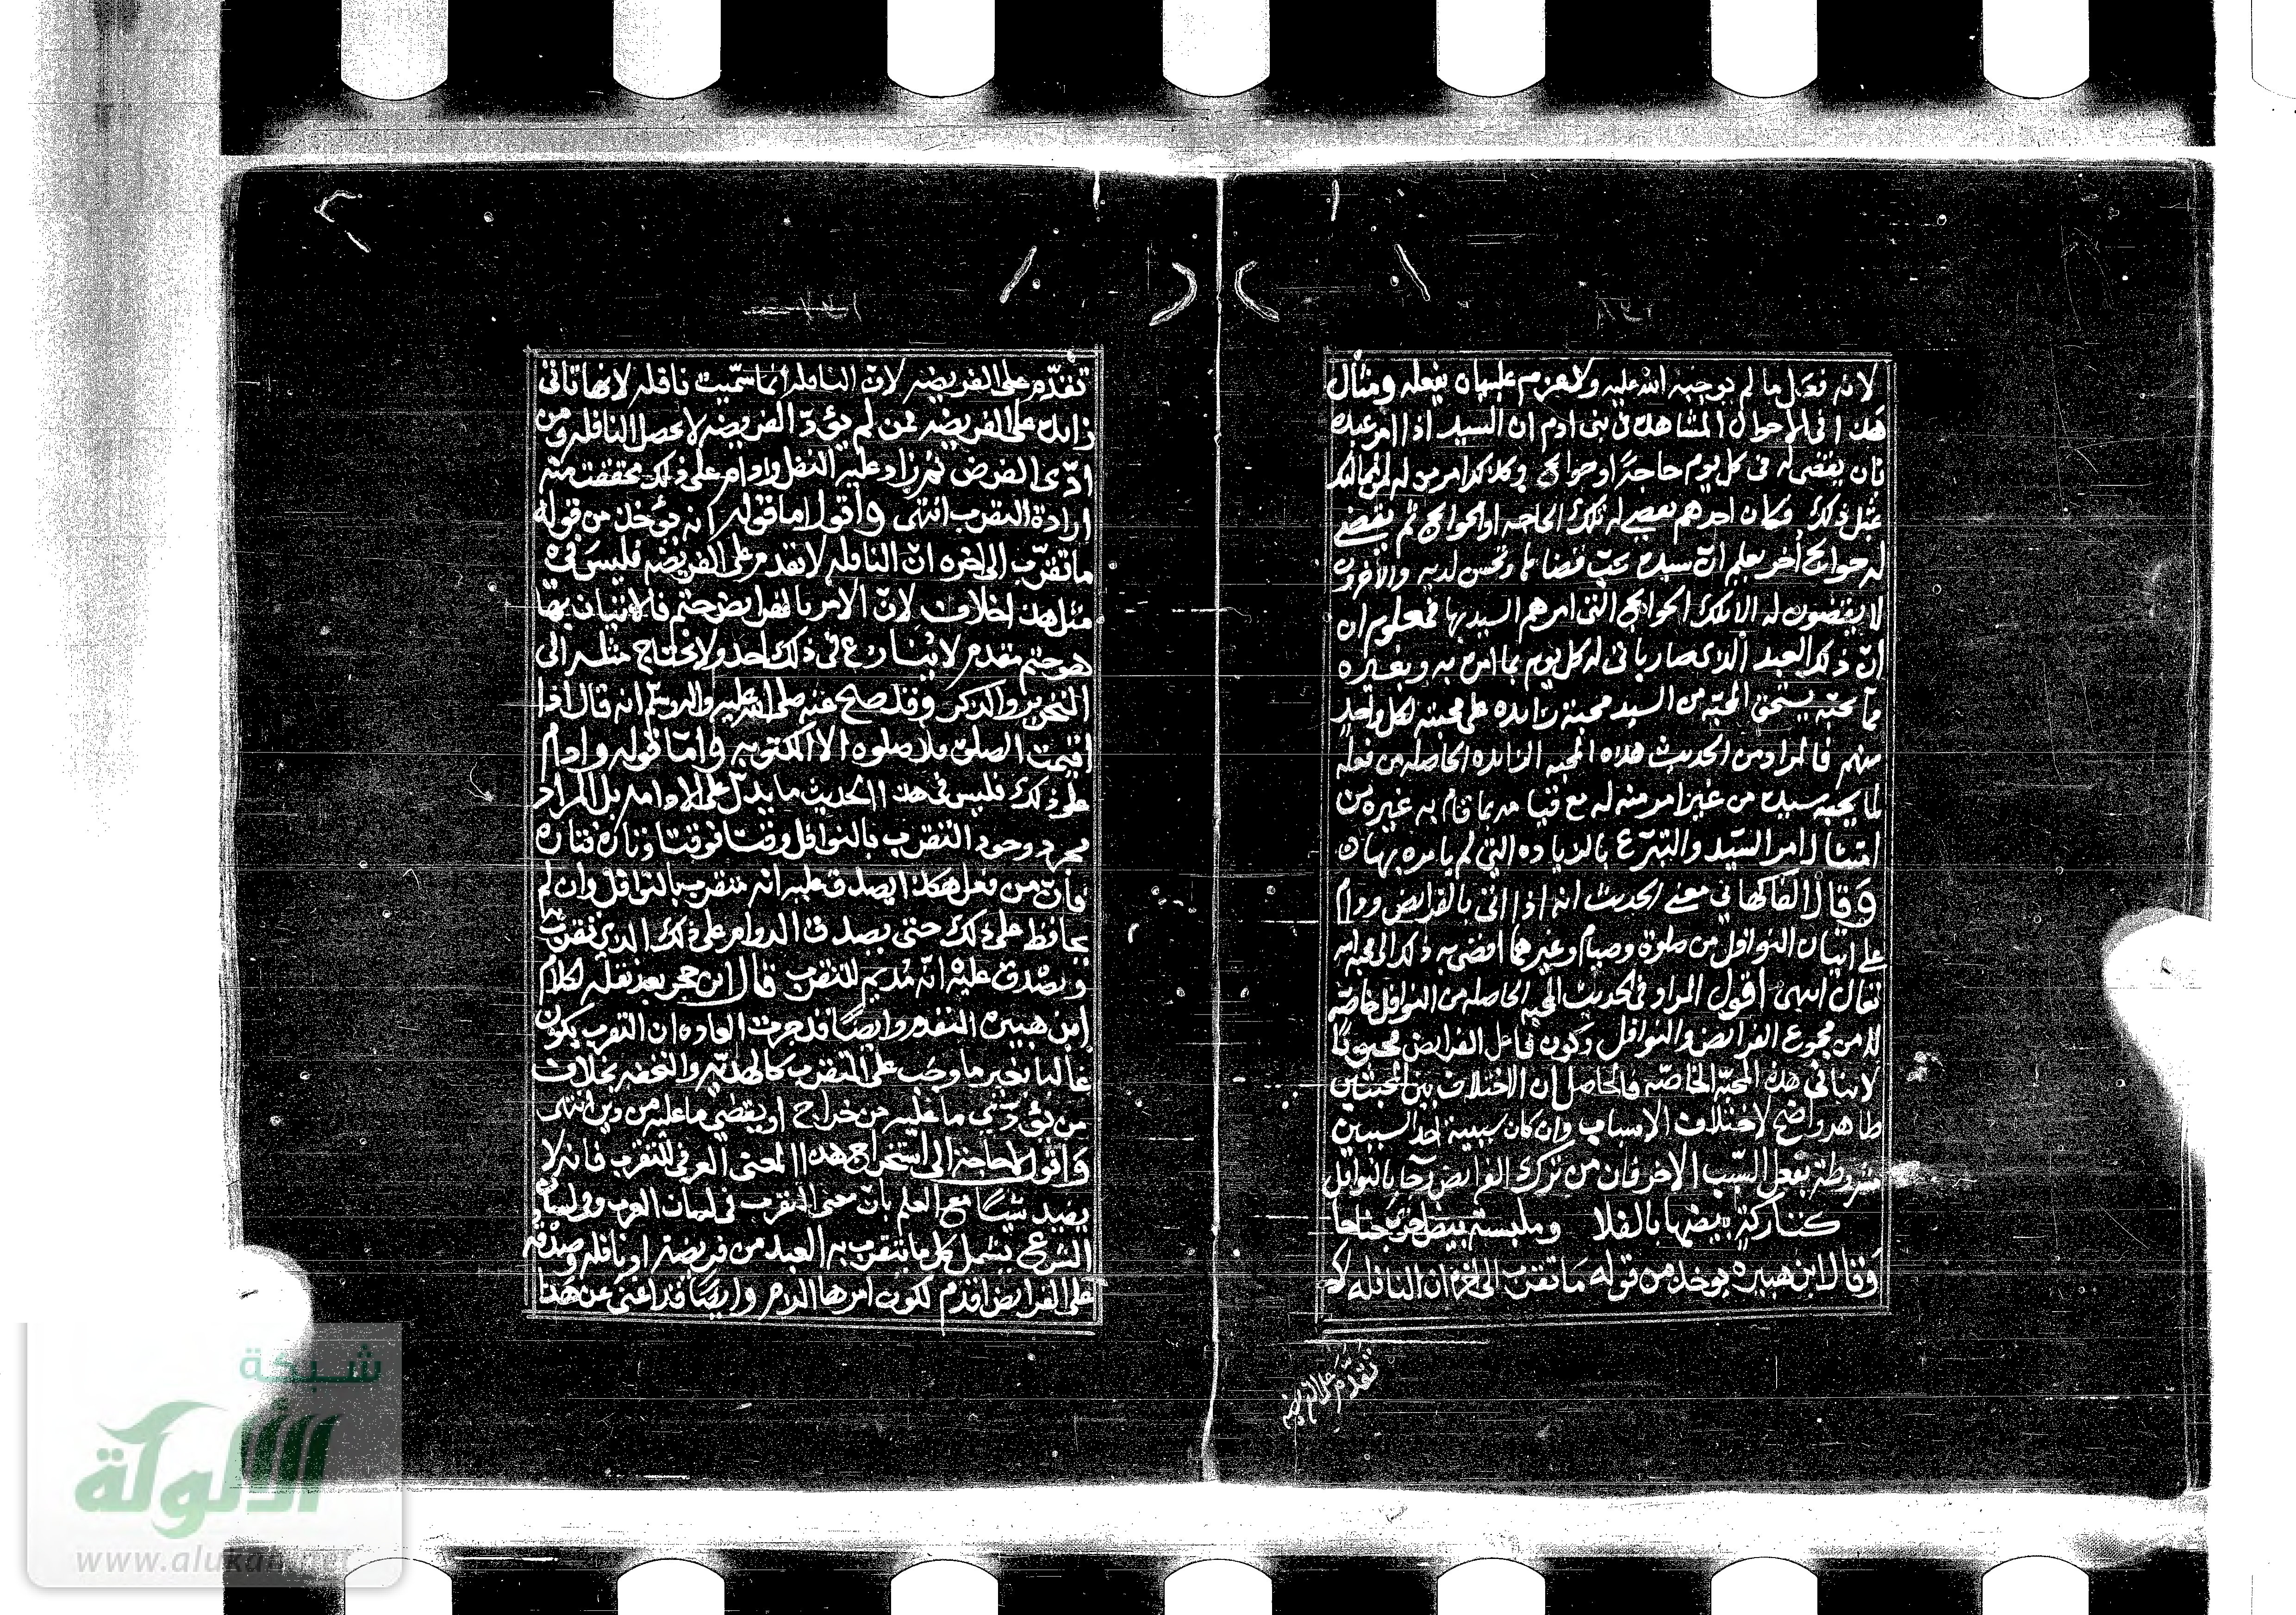 لانه فعل ما لم يوجبه الله عليه ولا عزم عليه بان يفعله ومثال
هذا فى الاحوال المشاهدة فى بنى ادم ان السيد اذا امر عبده
بان يقضى له فى كل يوم حاجة او حوائج وكذلك امر من له من المماليك
بمثل ذلك فكان احدهم يقضى له تلك الحاجه او الحوائج ثم يقضى
له حوائج اخر يعلم ان سيده يحب قضاها وتحسن لديه والاخرون
لا يقضون له الا تلك الحوائج التى امرهم السيد بها فمعلوم ان
ان ذلك العبد الذى صار ياتى له كل يوم بما امره به وبغيره
مما يحبه يستحق المحبه من السيد محبة زايده على محبته لكل واحد
منهم فالمراد من الحديث هذه المحبه الزايده الحاصله من فعله
لما يحبه سيده من غير امر منه له مع قيامه بما قام به غيره من
امتثال امر السيد والتبرع بالزياده التى لم يامره بها
وقال الفاكهانى معنى الحديث انه اذا اتى بالفرايض ودام
على اتيان النوافل من صلوة وصيام وغيرهما افضى به ذلك الى محبة الله
تعالى انتهى اقول المراد فى الحديث المحبه الحاصله من النوافل خاصه
لا من مجموع الفرايض والنوافل وكون فاعل الفرايض محبوبا
لا ينافى هذه المحبة الخاصه فالحاصل ان الاختلاف بين المحبتين
ظاهر واضح لاختلاف الاسباب وان كان سببية احد السببين
مشروطة بفعل السبب الاخر فان من ترك الفرايض وجا بالنوافل
كتاركة بيضها بالفلا وملبسة بيض اخرى جناحا
وقال ابن هبيره يوخذ من قوله ما تقرب الى اخره ان النافله لا
تقدم على الفريضه
تقدم على الفريضه لان النافله انما سميت نافله لانها تاتى
زايدة على الفريضه فمن لم يؤد الفريضه لا تحصل النافله ومن
ادى الفرض ثم زاد عليه النفل وادام على ذلك تحققت منه
ارادة التقرب انتهى واقول اما قوله انه يؤخذ من قوله
ما تقرب الى اخره ان النافله لا تقدم على الفريضه فليس فى
مثل هذا خلاف لان الامر بالفرايض حتم فالاتيان بها
هو حتم مقدم لا ينازع فى ذلك احد ولا يحتاج مثله الى
التحرير والذكر وقد صح عنه صلى الله عليه واله وسلم انه قال اذا
اقيمت الصلوة فلا صلوه الا المكتوبه واما قوله وادام
على ذلك فليس فى هذا الحديث ما يدل على الادامه بل المراد
مجرد وجود التقرب بالنوافل وقتا فوقتا وتارة فتارة
فان من فعل هكذا يصدق عليه انه متقرب بالنوافل وان لم
يحافظ على ذلك حتى يصدق الدوام على ذلك الذى تقرب به
ويصدق عليه انه مديم للتقرب قال ابن حجر بعد نقله لكلام
ابن هبيره المتقدم وايضا قد جرت العاده ان التقرب يكون
غالبا بغير ما وجب على المتقرب كالهديه والتحفه بخلاف
من يؤدى ما عليه من خراج او يقضى ما عليه من دين انتهى
واقول لا حاجة الى استخراج هذا المعنى العرفى للتقرب فانه لا
يفيد شيئا مع العلم بان معنى التقرب فى لسان العرب وفى لسان
الشرع يشمل كل ما يتقرب به العبد من فريضة او نافله وصدقه
على الفرايض اقدم لكون امرها الزم وايضا قد اغنى عن هذا
شبكة
الألوكة
www.alukah.net